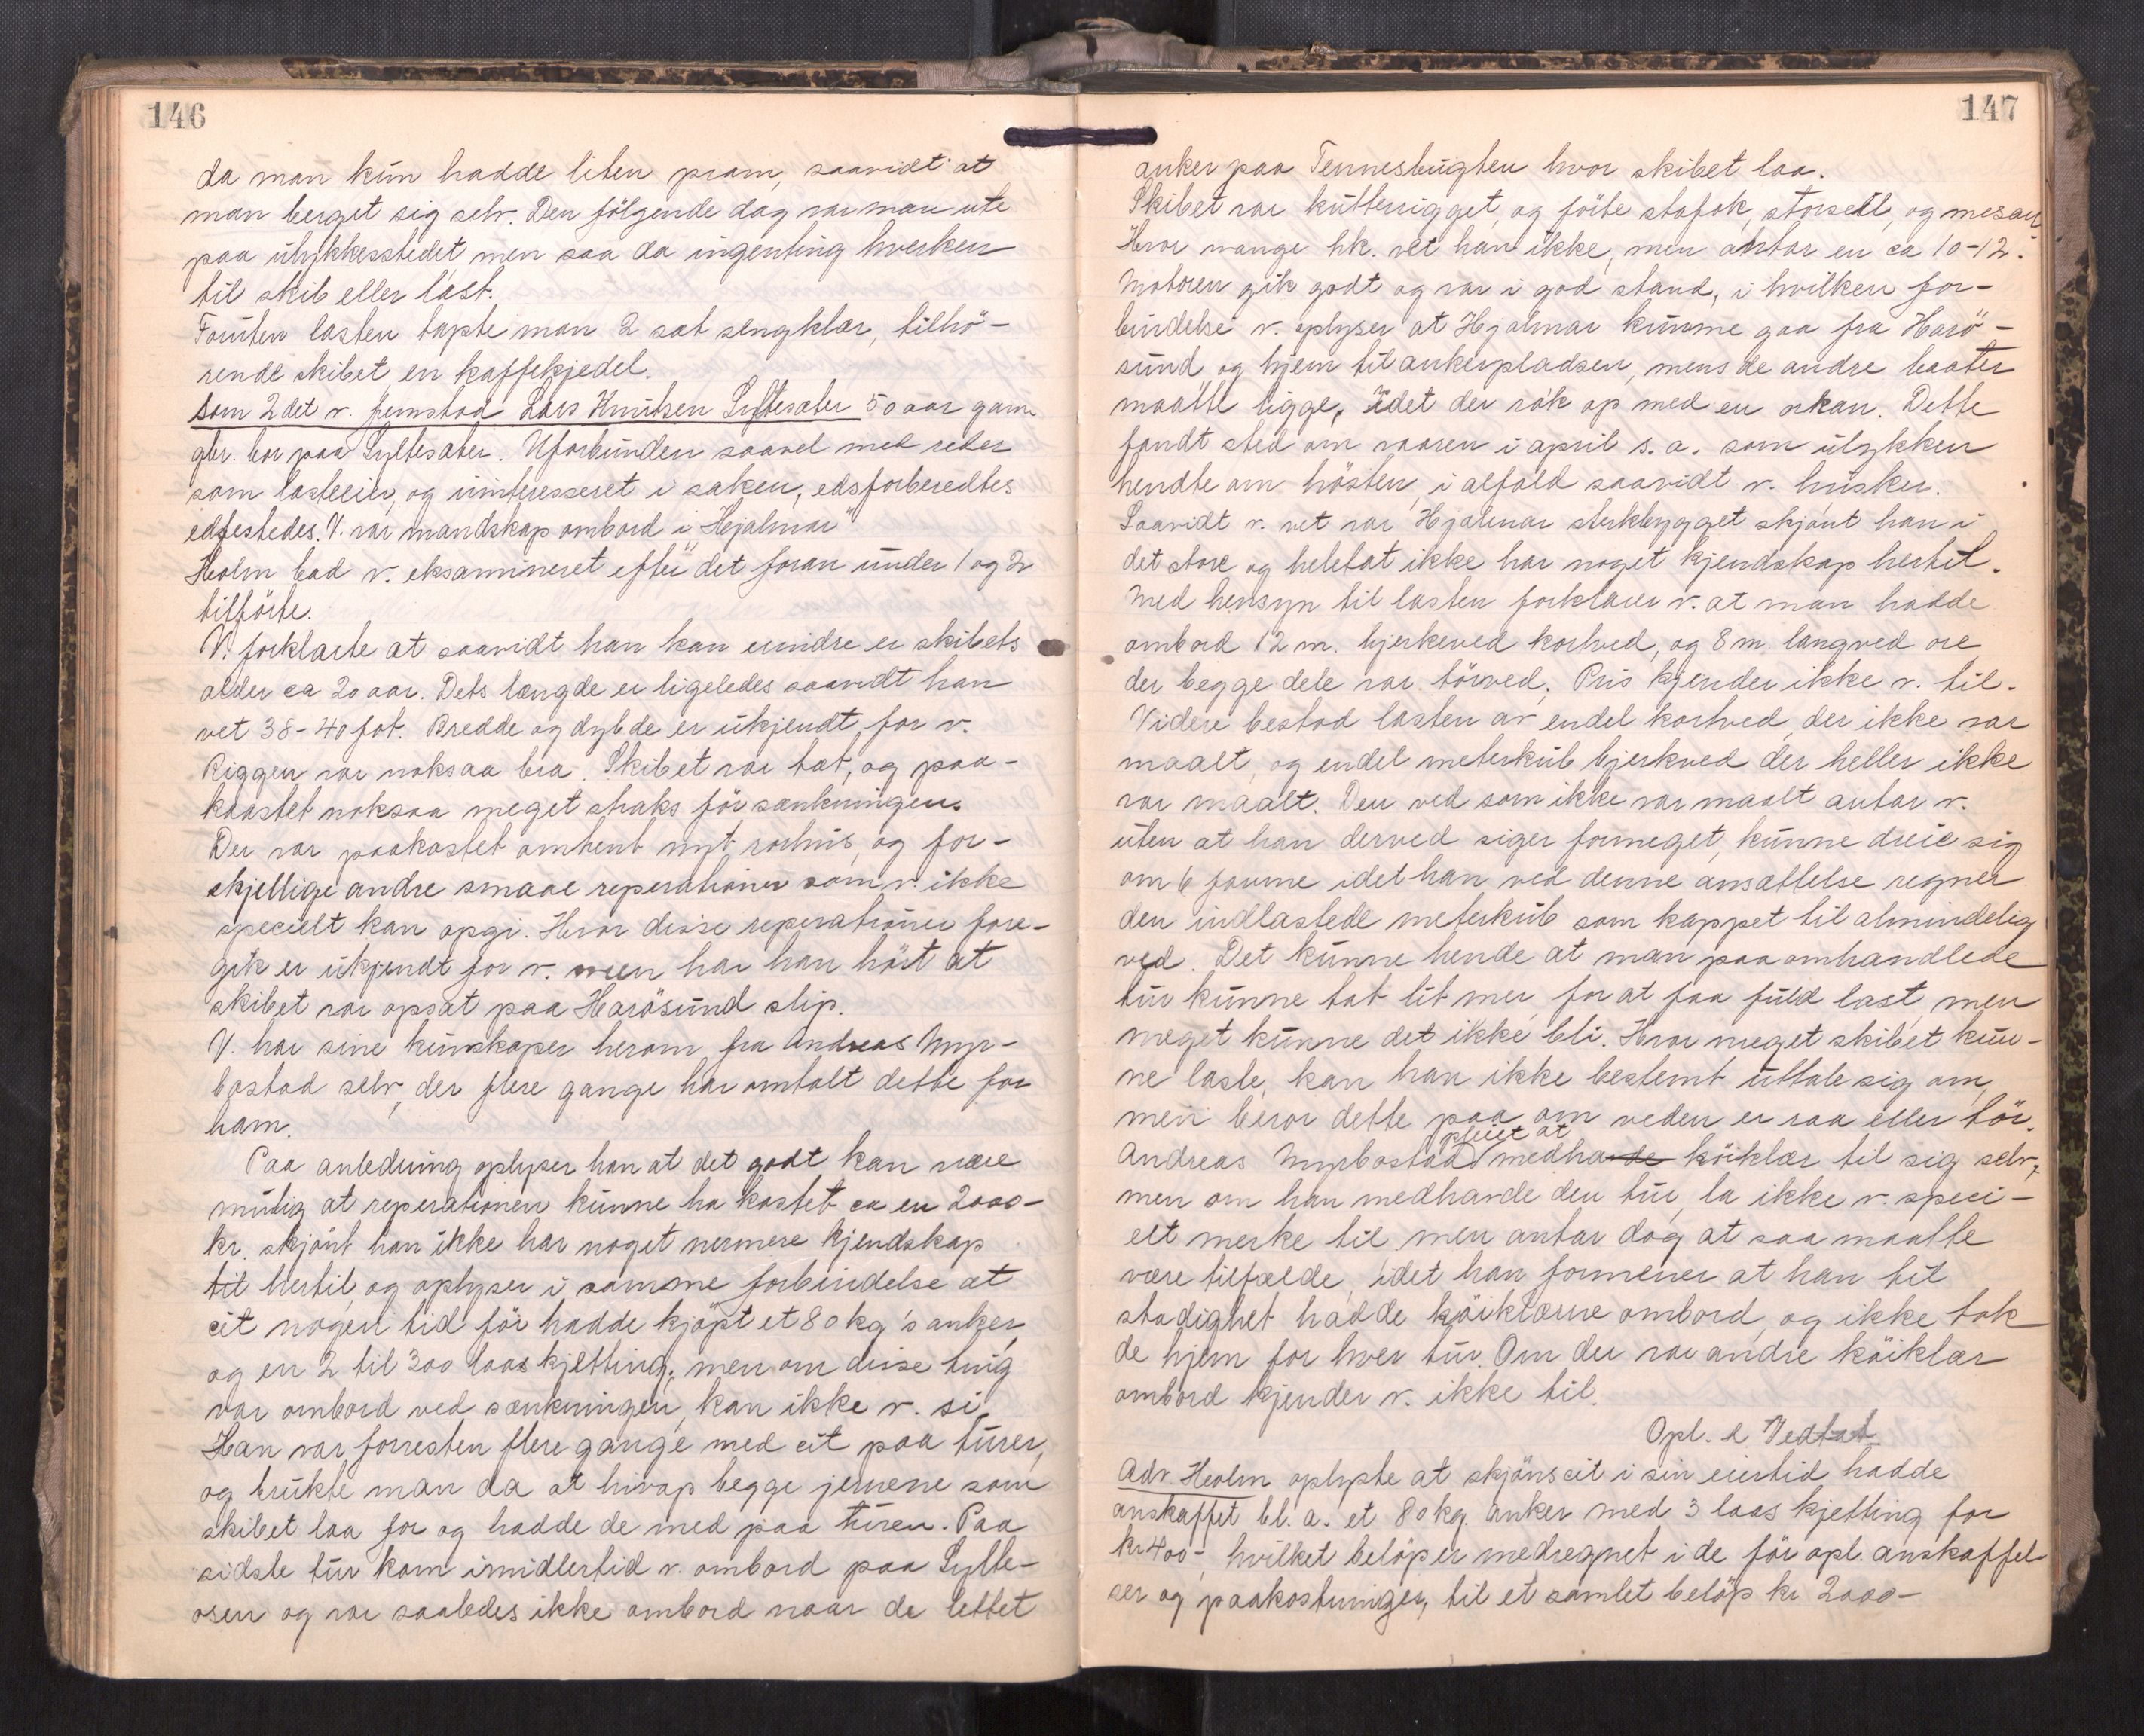 146
da man kun hadde liten pram, saavidt at
man berget sig selv. Den följgende dag var man ute
paa ulykkesstedet, men saa da ingenting hverken
til skib eller last.
Foruten lasten tapte man 2 sat sengklær, tilhö-
rende skibet, en kaffekjedel.
Som 2det v. fremstod Lars Knutsen Syltesæter 50 aar gam.
gbr. bor paa Syltesæter. Uforbunden saavel med reder
som lasteeier, og uinteresseret i saken, edsforberedtes
edfestedes. V. var mandskap ombord i "Hjalmar"
Holm bad v. eksamineret efter det foran under 1 og 2
tilförte.
V. forklarte at saavidt han kan erindre er skibets
alder ca 20 aar. Dets længde er ligeledes saavidt han
vet 38-40 fot. Bredde og dybde er ukjendt for v.
Riggen var noksaa bra. Skibet var tæt, og paa-
kaastet noksaa meget straks för sænkningen.
Der var paakostet omtrent nyt rorhus, og for-
skjellige andre smaae reperationer som v. ikke
specielt kan opgi. Hvor disse reperationer fore-
gik er ukjendt for v. men har han hört at
skibet var opsat paa Harösund slip.
V. har sine kunskaper herom fra Andreas Myr-
bostad selv, der flere gange har omtalt dette for
ham.
Paa anledning oplyser han at det godt kan være
mulig at reperationen kunne ha kostet ca en 2000-
kr. skjönt han ikke har noget nermere kjendskap
til hertil, og oplyser i samme forbindelse at
eit nogen tid för hadde kjöpt et 80 kg's anker,
og en 2 til 300 laas kjetting, men om disse ting
var ombord ved sænkningen, kan ikke v. si.
Han var forresten flere gange med eit paa turer,
og brukte man da at hivop begge jernene som
skibet laa for og hadde de med paa turen. Paa
sidste tur kom imidlertid v. ombord paa Sylte-
osen og var saaledes ikke ombord naar de lettet
147
anker paa Tennesbugten hvor skibet laa.
Skibet var kutterrigget, og förte stafok, storseil, og mesan
Hvor mange hk. vet han ikke, men antar en ca 10-12.
Motoren gik godt og var i god stand, i hvilken for-
bindelse v. oplyser at Hjalmar kunne gaa fra Harö-
sund og hjem til ankerpladsen, mens de andre baater
maatte ligge, idet der rök op med en orkan. Dette
fandt sted om vaaren i april s.a. som ulykken
hendte om hösten, i alfald saavidt v. husker.
Saavidt v. vet var Hjalmar sterkbygget skjönt han i
det store og heletat ikke har noget kjendskap hertil.
Med hensyn til lasten forklarer v. at man hadde
ombord 12 m. bjerkeved kortved, og 8 m langved ore
der begge dele var törved. Pris kjender ikke v. til.
Videre bestod lasten av endel kortved, der ikke var
maalt, og endel meterkub bjerkved der heller ikke
var maalt. Den ved som ikke var maalt antar v.
uten at han derved siger formeget, kunne dreie sig
om 6 favne idet han ved denne ansættelse regner
den indlastede meterkub som kappet til almindelig
ved. Det kunne hende at man paa omhandlede
tur kunne tat lit mer, for at faa fuld last, men
meget kunne det ikke bli. Hvor meget skibet kun-
ne laste, kan han ikke bestemt uttale sig om,
men beror dette paa om veden er raa eller tör.
Andreas Myrbostad pleiet at medhavde köiklær til sig selv,
men om han medhavde den tur, la ikke v. speci-
elt merke til men antar dog at saa maatte
være tilfælde, idet han formener at han til
stadighet hadde köiklærne ombord, og ikke tok
de hjem for hver tur. Om der var andre köiklær
ombord kjender v. ikke til.
Opl. & Vedtat
Adv. Holm oplyste at skjönseit i sin eiertid hadde
anskaffet bl.a. et 80 kg. anker med 3 laas kjetting for
kr 400-, hvilket belöp er medregnet i de för opl. anskaffel-
ser og paakostninger, til et samlet belöp kr 2000-